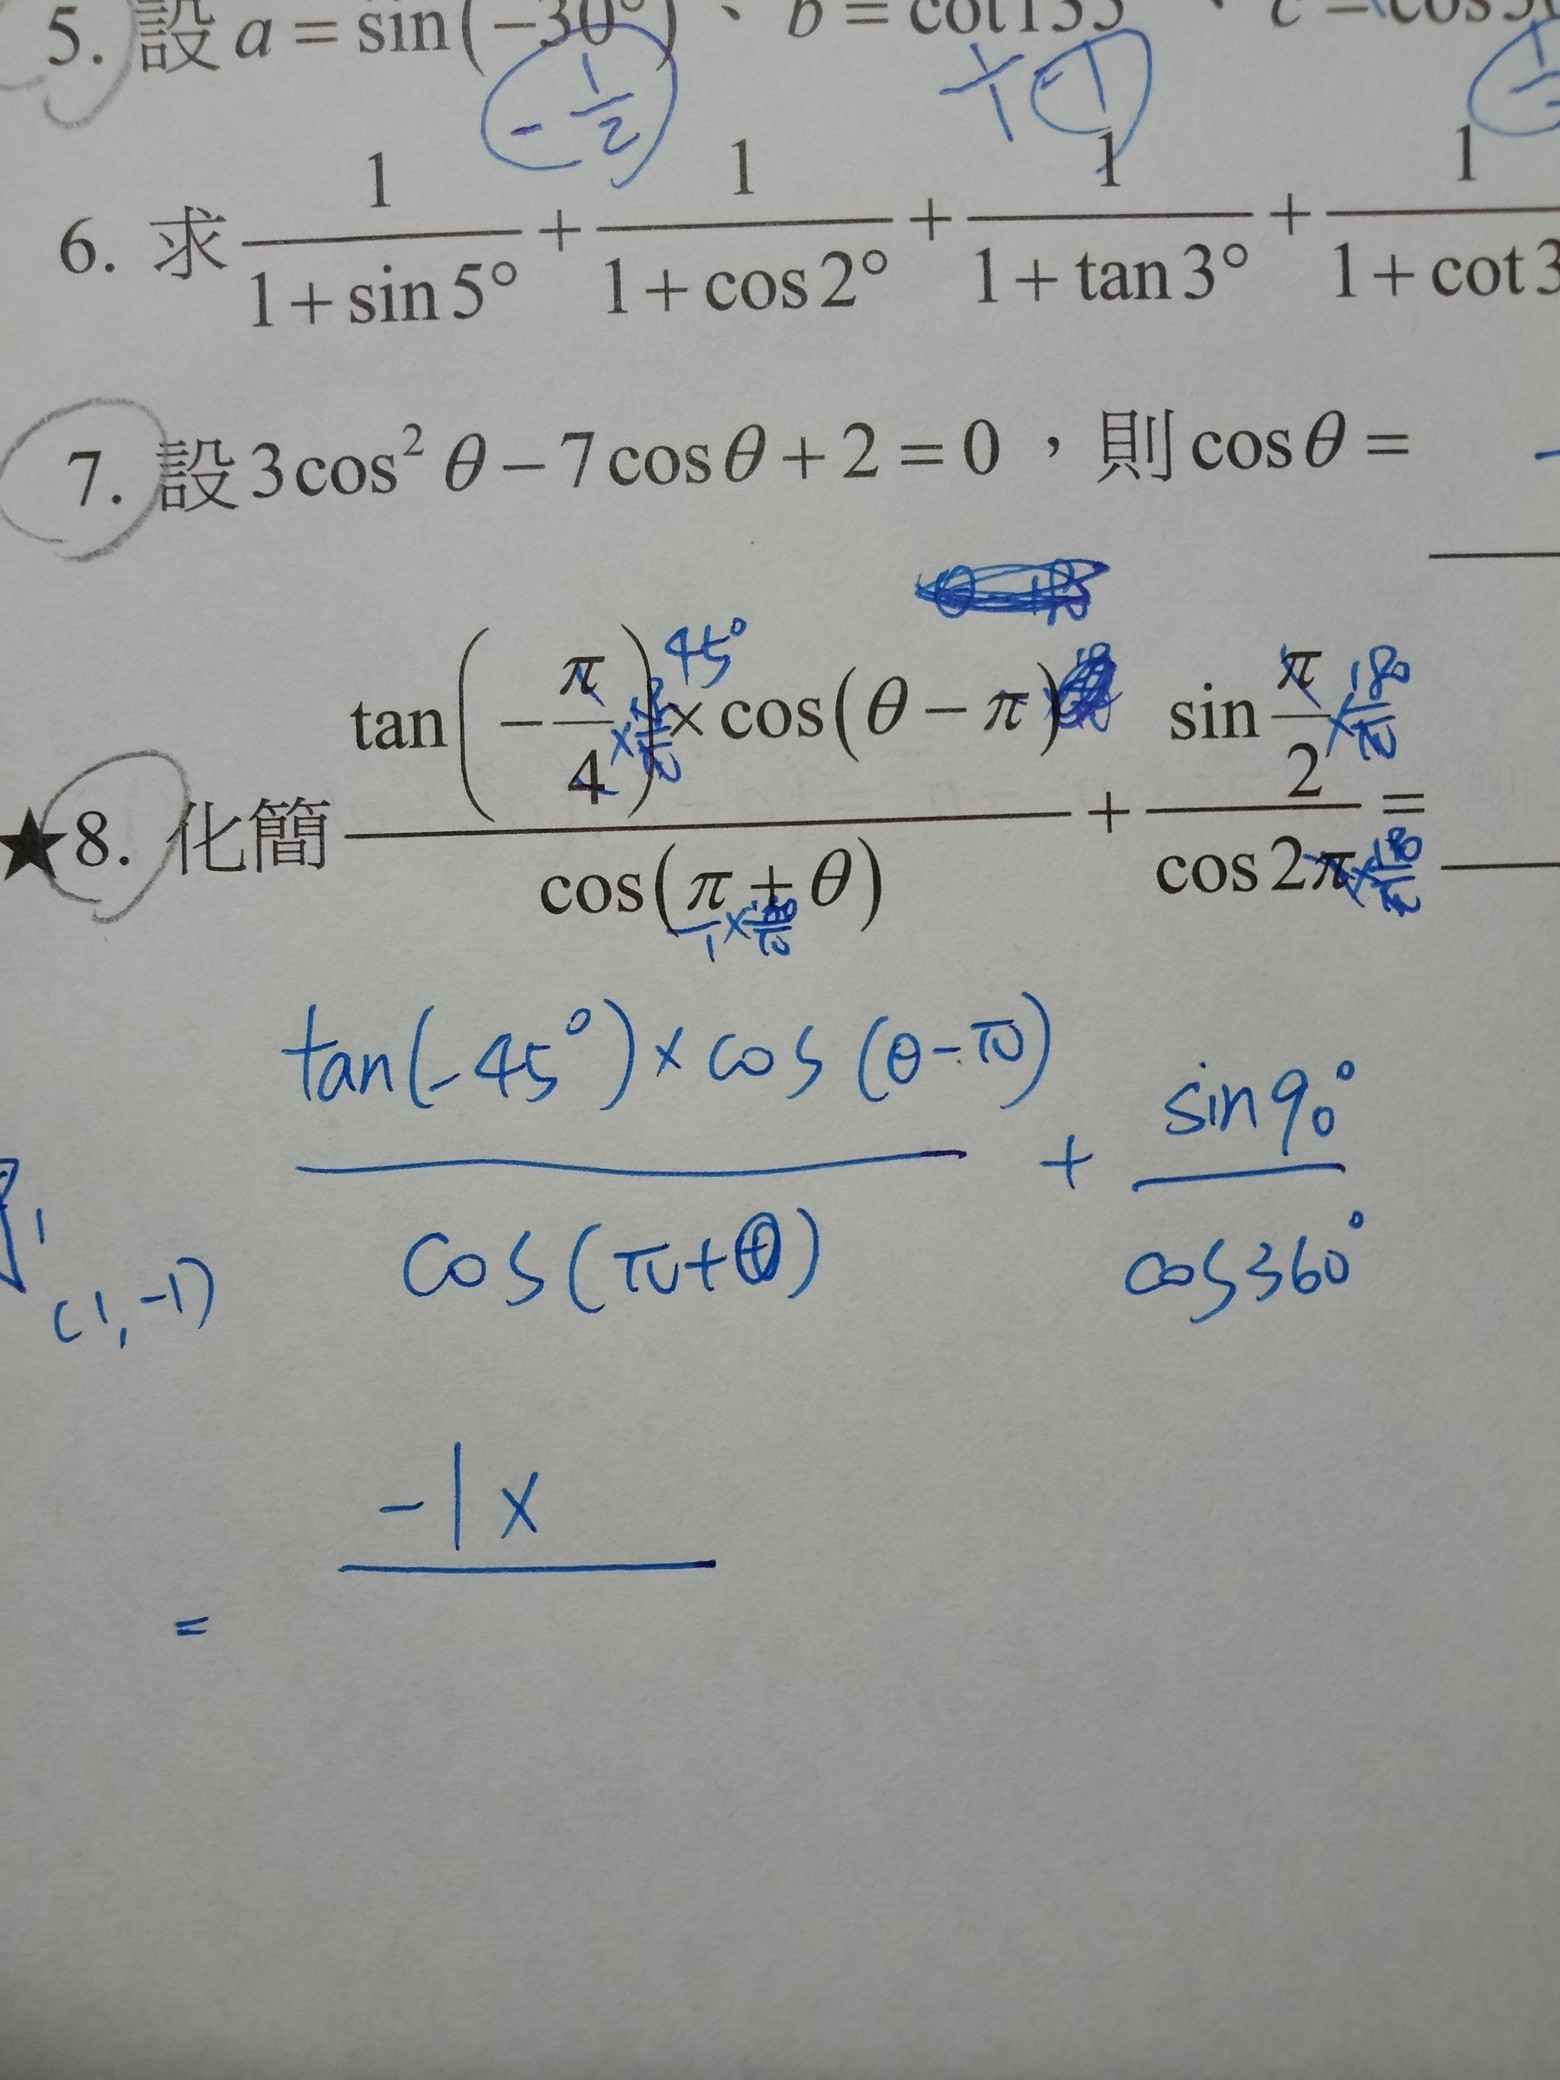 5. 設 a = sin(−30°)、 b = cot135 、 c = cos
−1/2 −1
6. 求 1/(1+sin5°) + 1/(1+cos2°) + 1/(1+tan3°) + 1/(1+cot3
7. 設 3cos² θ − 7cosθ + 2 = 0 ，則 cosθ =
45°
★8. 化簡 (tan(−π/4) × cos(θ − π))/(cos(π + θ)) + (sin π/2)/(cos 2π) =
×180/π ×180/π
/1 ×180/π ×180/π
(tan(-45°) × cos(θ-π))/(cos(π+θ)) + sin90°/cos360°
1
(1, -1)
= -1 ×